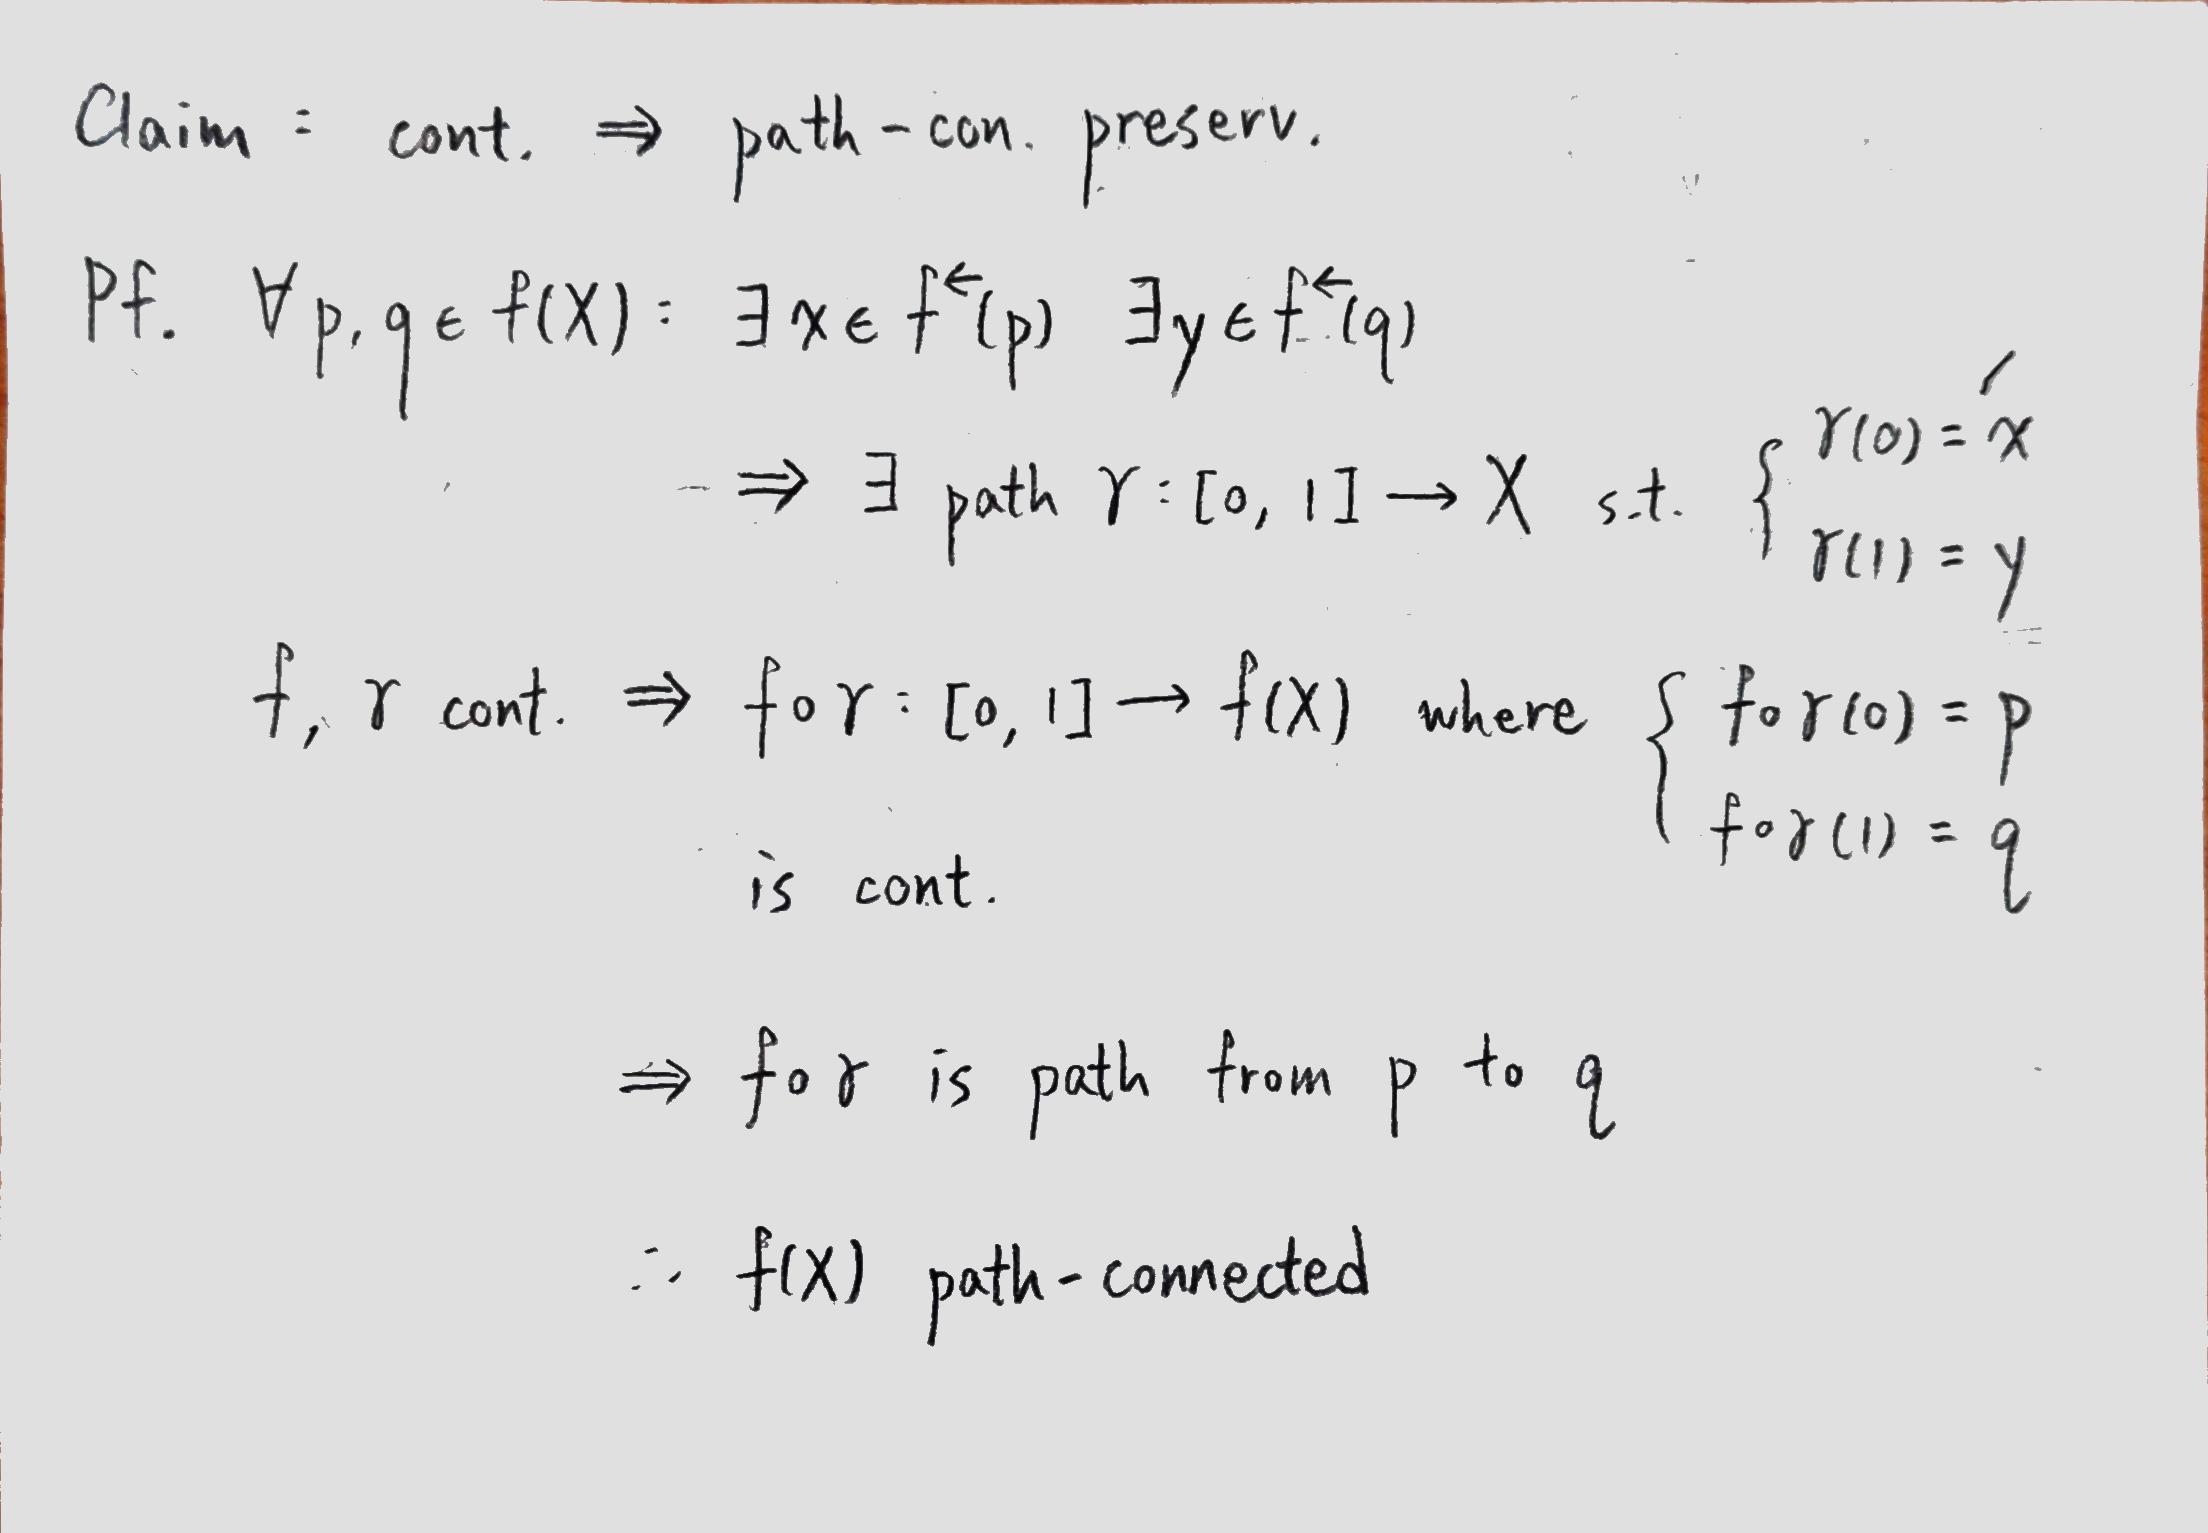 Claim : cont. ⇒ path-con. preserv.
Pf. ∀p, q ∈ f(X) : ∃x ∈ f^←(p) ∃y ∈ f^←(q)
⇒ ∃ path γ : [0, 1] → X s.t. { γ(0) = x
γ(1) = y
f, γ cont. ⇒ f∘γ : [0, 1] → f(X) where { f∘γ(0) = p
f∘γ(1) = q
is cont.
⇒ f∘γ is path from p to q
∴ f(X) path-connected